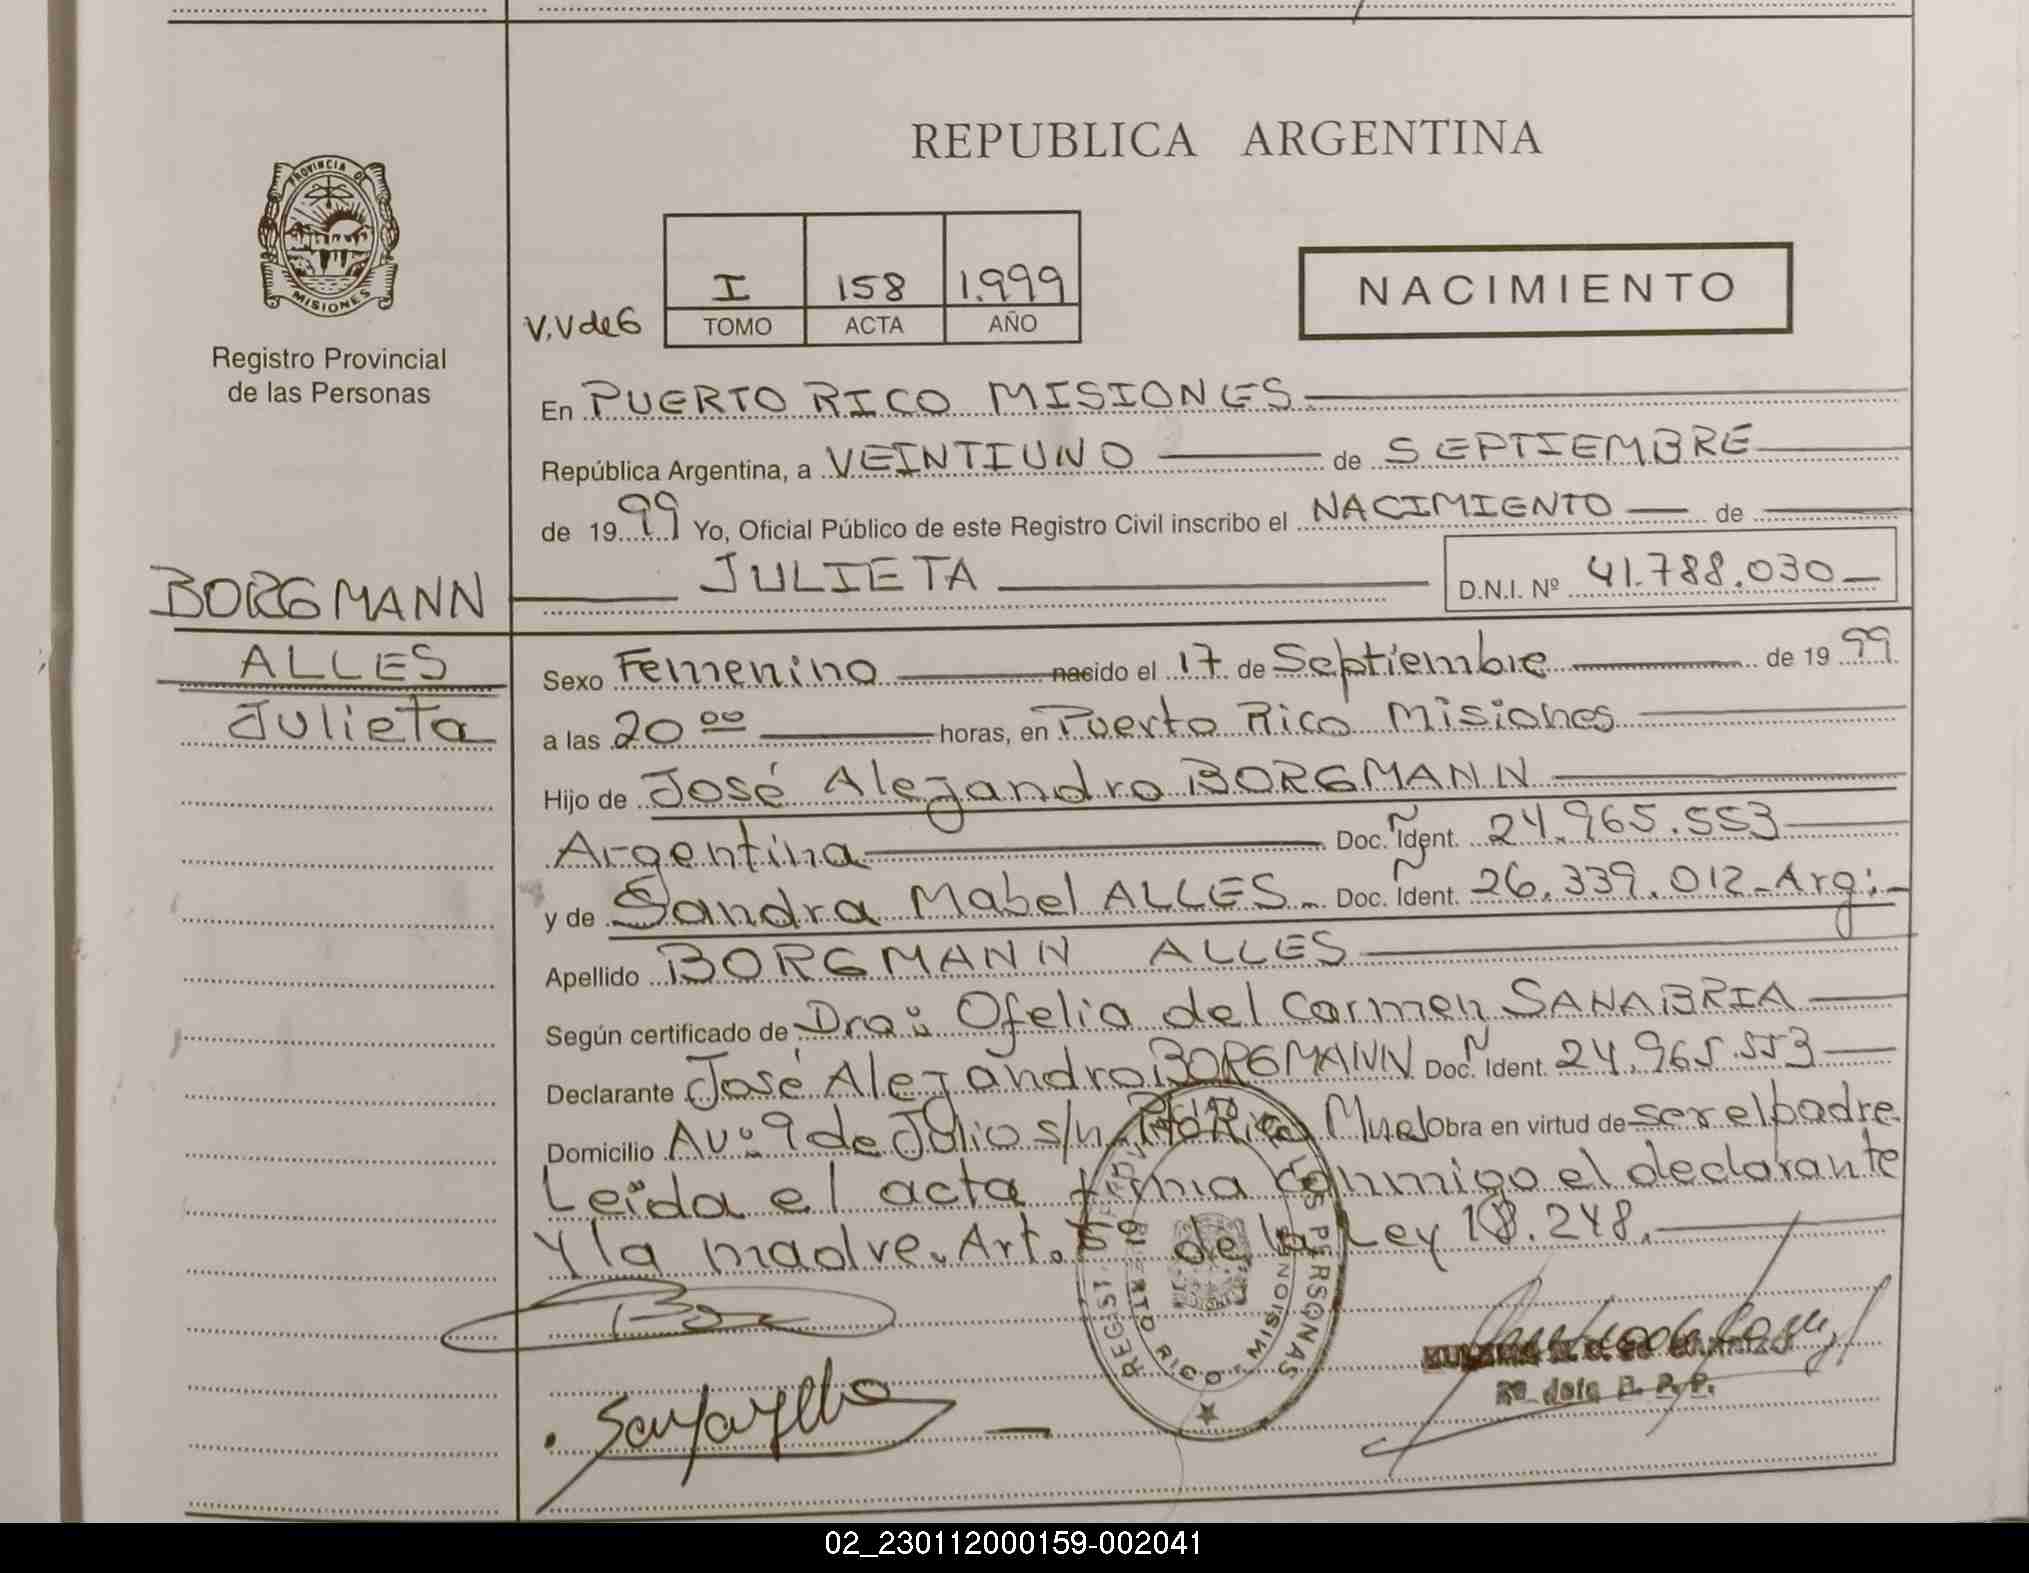 REPUBLICA ARGENTINA
PROVINCIA DE
MISIONES
Registro Provincial
de las Personas
V.V de G
I 158 1.999
TOMO ACTA AÑO
NACIMIENTO
En PUERTO RICO MISIONES
República Argentina, a VEINTIUNO de SEPTIEMBRE
de 1999 Yo, Oficial Público de este Registro Civil inscribo el NACIMIENTO de
JULIETA D.N.I. Nº 41.788.030
BORGMANN
ALLES
Julieta
Sexo Femenino nacido el 17 de Septiembre de 1999
a las 20 00 horas, en Puerto Rico Misiones
Hijo de José Alejandro BORGMANN
Argentina Doc. Ident. 24.965.553
y de Sandra Mabel ALLES Doc. Ident. 26.339.012 - Arg:
Apellido BORGMANN ALLES
Según certificado de Dra: Ofelia del Carmen SANABRIA
Declarante José Alejandro BORGMANN Doc. Ident. 24.965.553
Domicilio Av: 9 de Julio s/n Pto Rico Mnes Obra en virtud de ser el padre.
Leída el acta firma conmigo el declarante
y la madre. Art. 5º de la Ley 18.248.
PERSONAS
PUERTO RICO - MISIONES
02_230112000159-002041